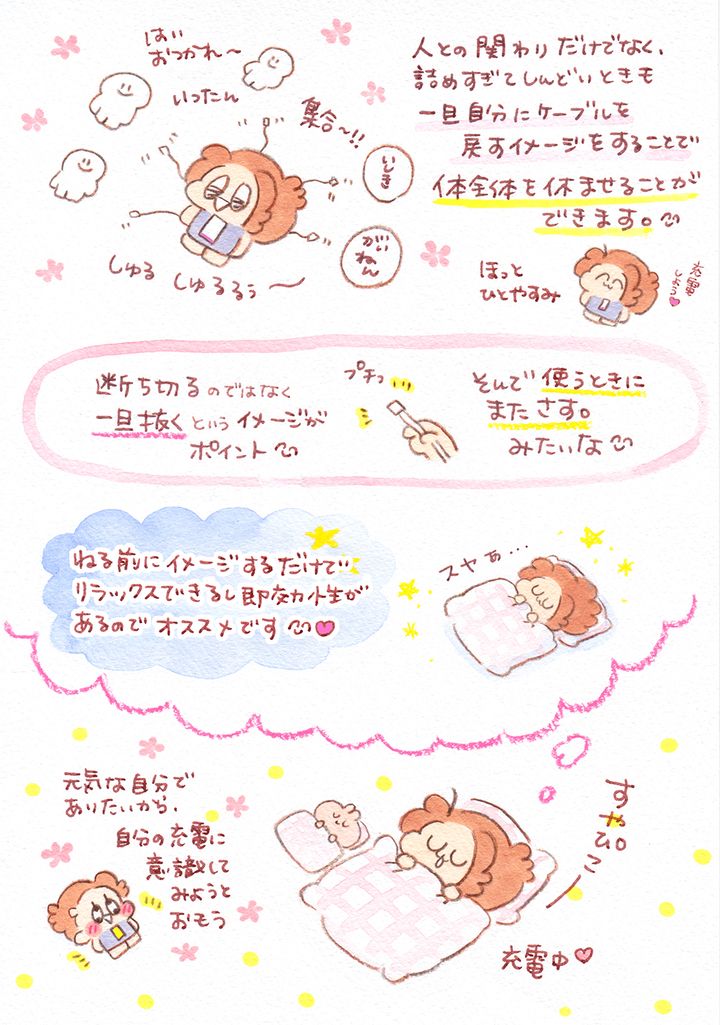 はい
おつかれ～
いったん
集合～!!
いしき
がいねん
しゅる しゅるるぅ～
人との関わりだけでなく、
詰めすぎてしんどいときも
一旦自分にケーブルを
戻すイメージをすることで
体全体を休ませることが
できます。
ほっと
ひとやすみ
充電
しよっ
断ち切るのではなく
一旦抜くというイメージが
ポイント
プチっ
そんで使うときに
またさす。
みたいな
ねる前にイメージするだけで
リラックスできるし即効性が
あるのでオススメです
スヤぁ…
元気な自分で
ありたいから、
自分の充電に
意識して
みようと
おもう
すやぴこ
充電中